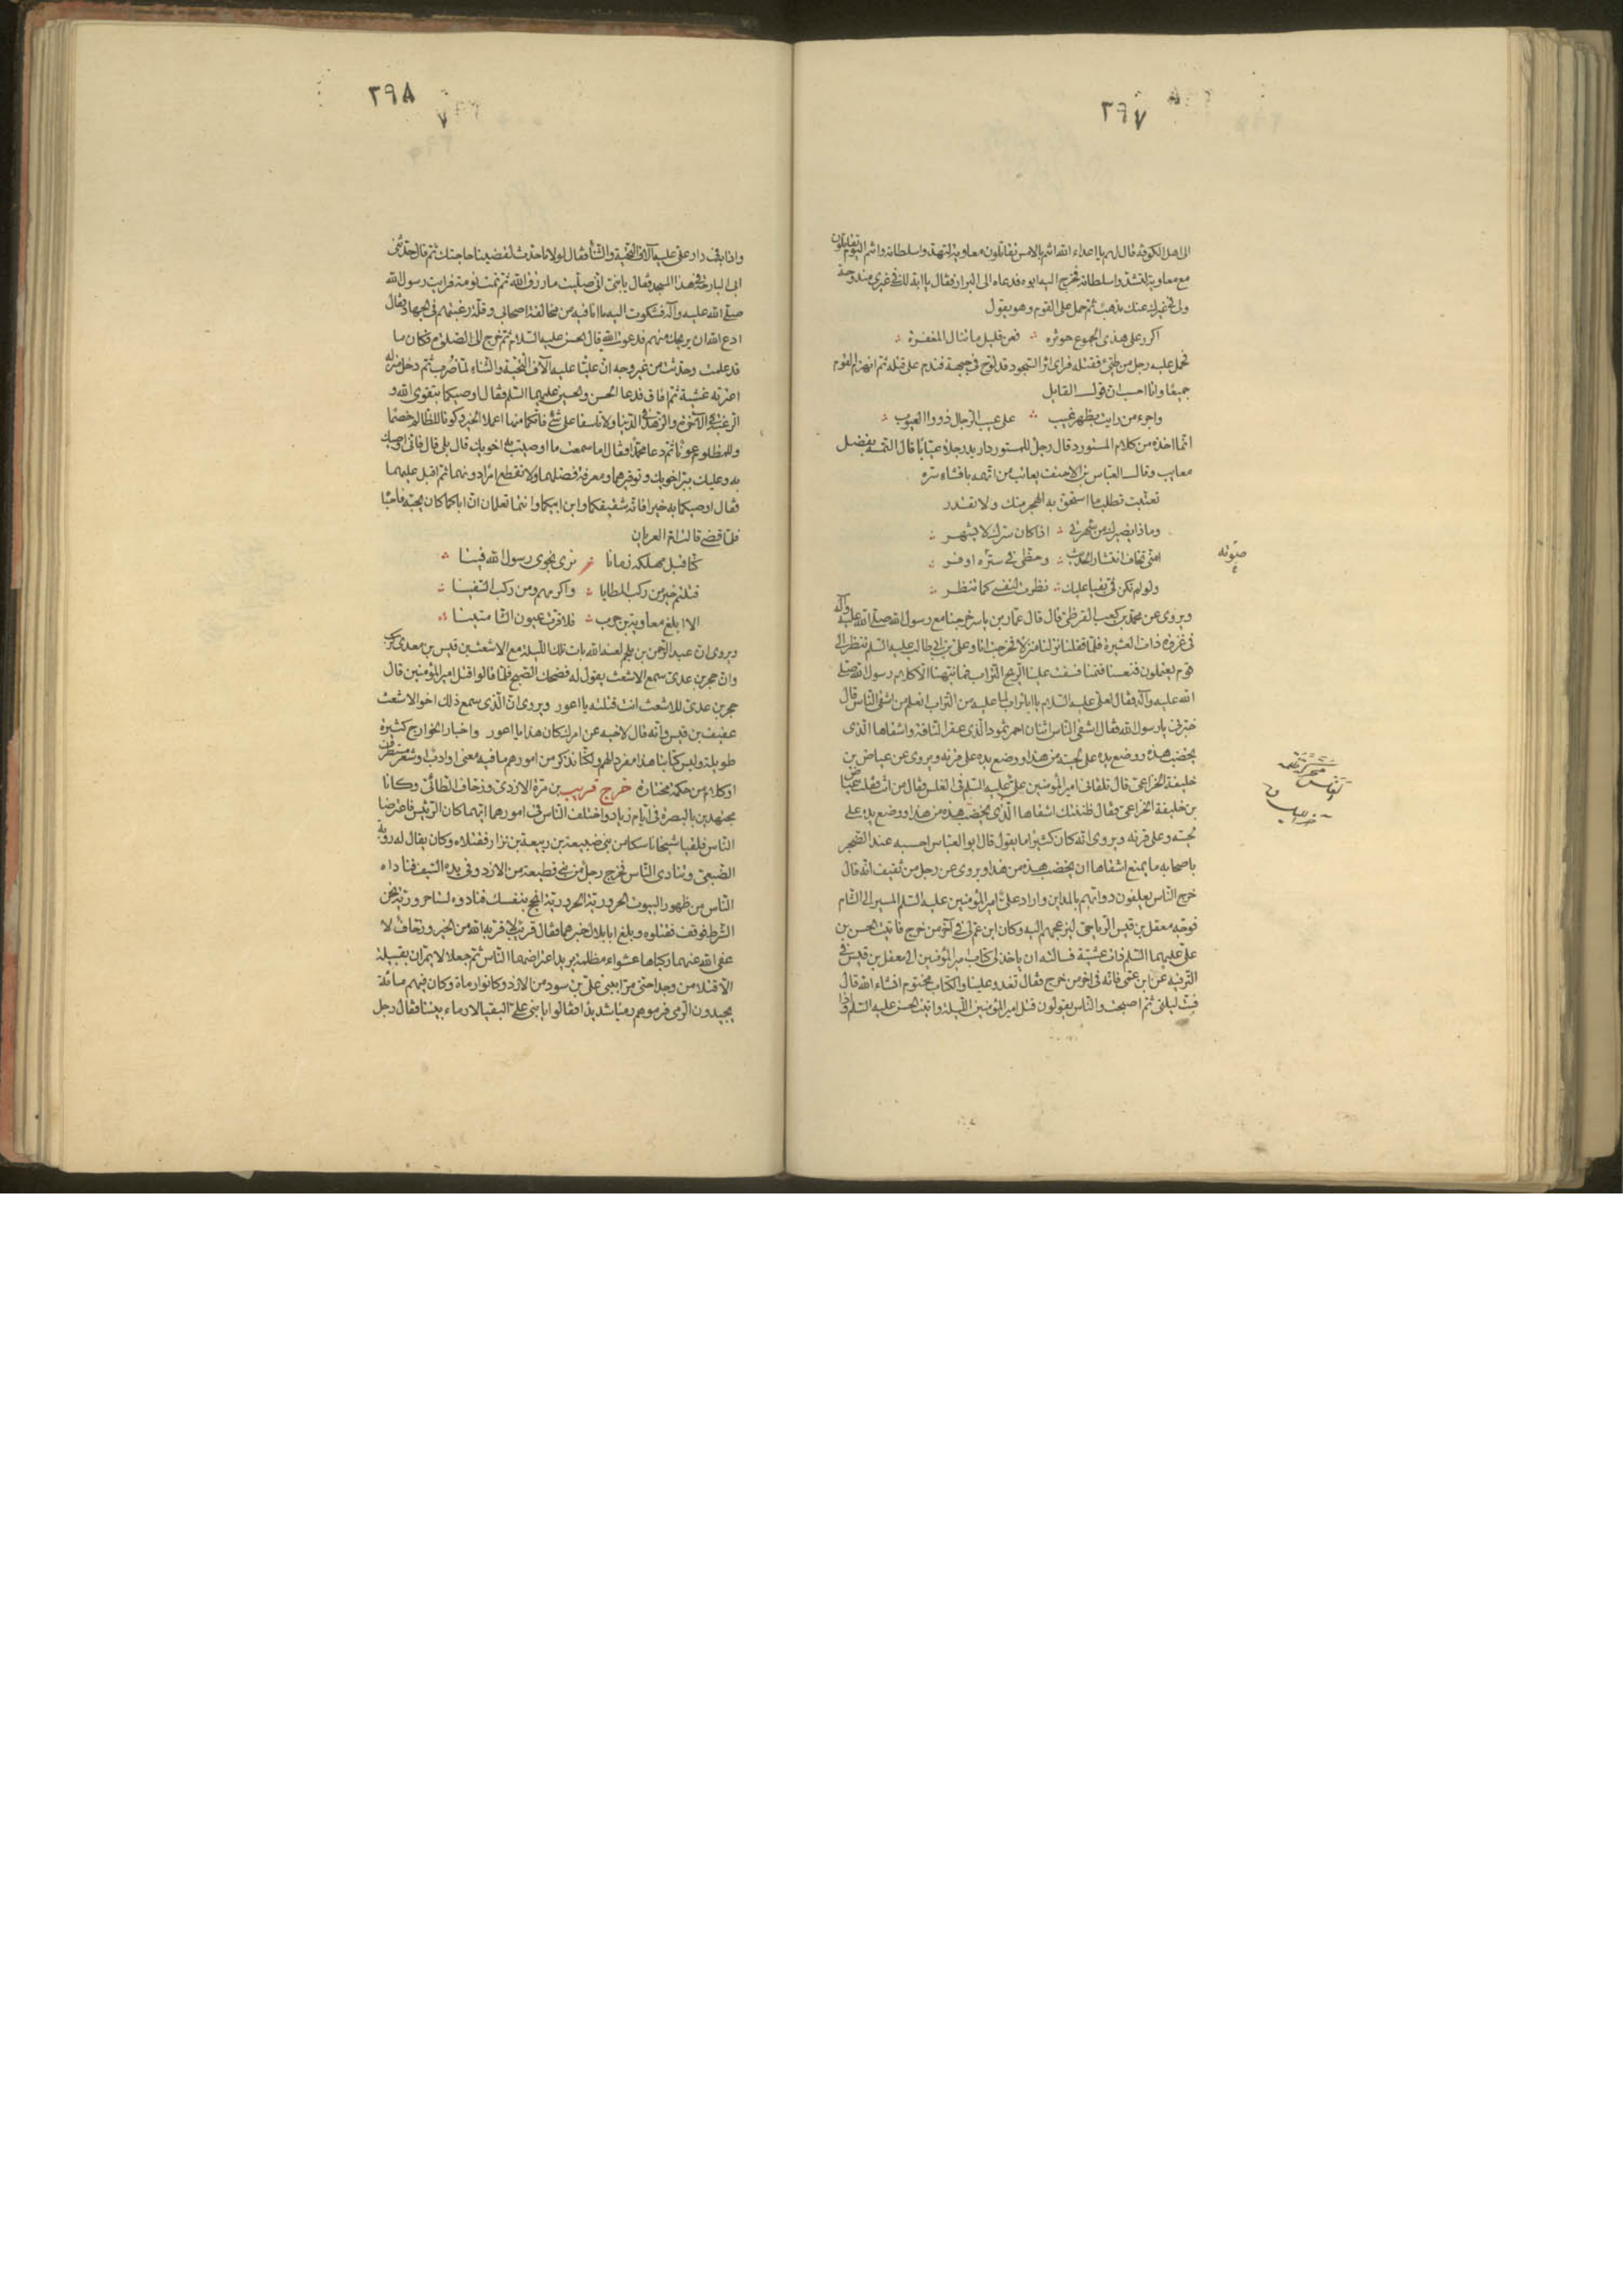 ٢٩٧
الى اهل الكوفة فقال لهم يا اعداء الله انتم بالامس تقاتلون معاوية لتهدوا سلطانه وانتم اليوم تقاتلون
مع معاوية لتشدوا سلطانه فخرج اليه ابوه فدعاه الى البراز فقال يا ابه لك في غيري مندوحة
ولي في غيرك عنك مذهب ثم حمل على القوم وهو يقول
اكرر على هذي الجموع حوثره فعن قليل ما تنال المغفره
فحمل عليه رجل من طيئ فقتله فراى اثر السجود قد لوح في جبهته فندم على قتله ثم انهزم القوم
جميعا وانا احسب ان قول القايل
واجرء من رايت بظهر غيب على عيب الرجال ذووا العيوب
انما اخذه من كلام المستورد قال رجل للمستورد اريد رجلا عيابا قال التمسه بفضل
معايب وقال العباس بن الاحنف يعاتب من اتهمه بافشاء سره
تعتبت تطلب ما استحق به الهجر منك ولا تقدر
وماذا يضيرك من شهرتي اذا كان سرك لا يشهر
امني تخاف انتشار الحديث وحظي في ستره اوفر
صونه
ولو لم تكن في بقيا عليك نظرت لنفسي كما تنظر
ويروى عن محمد بن كعب القرظي قال قال عمار بن ياسر خرجنا مع رسول الله صلى الله عليه وآله
في غزوة ذات العشيرة فلما قفلنا نزلنا منزلا فخرجت انا وعلي بن ابي طالب عليه السلم ننظر الى
قوم يعتملون فنعسنا فنمنا فسفت علينا الريح التراب فما نبهنا الا كلام رسول الله صلى
الله عليه وآله فقال لعلي عليه السلام يا ابا تراب لما عليه من التراب اتعلم من اشقى الناس قال
خبرني يا رسول الله فقال اشقى الناس اثنان احمر ثمود الذي عقر الناقة واشقاها الذي
يخضب هذه ووضع يده على لحيته من هذا ووضع يده على قرنه ويروى عن عياض بن
خليفة الخزاعي قال تلقاني امير المؤمنين علي عليه السلم في الغلس فقال من انت فقلت عياض
بن خليفة الخزاعي فقال ظننتك اشقاها الذي يخضب هذه من هذا ووضع يده على
لحيته وعلى قرنه ويروى انه كان كثيرا ما يقول قال ابو العباس احسبه عند الضجر
باصحابه ما يمنع اشقاها ان يخضب هذه من هذا ويروى عن رجل من ثقيف انه قال
خرج الناس يعلفون دوابهم بالمداين واراد علي امير المؤمنين عليه السلم المسير الى الشام
فوجه معقل بن قيس الرياحي ليزعجهم اليه وكان ابن عم لي في آخر من خرج فاتيت الحسن بن
علي عليهما السلم ذات عشية فسالته ان ياخذ لي كتاب امير المؤمنين الى معقل بن قيس في
الترفيه عن ابن عمي فانه في اخر من خرج فقال تغدو علينا والكتاب مختوم ان شاء الله قال
فبت ليلتي ثم اصبحت والناس يقولون قتل امير المؤمنين الليلة واتيت الحسن عليه السلم واذا
٢٩٨
وانا به في دار علي عليه آلاف التحية والثناء فقال لولا ما حدث لقضينا حاجتك ثم قال حدثني
ابي البارحة في هذا المسجد فقال يا بني اني صليت ما رزق الله ثم نمت نومة فرايت رسول الله
صلى الله عليه وآله فشكوت اليه ما انا فيه من مخالفة اصحابي وقلة رغبتهم في الجهاد فقال
ادع الله ان يريحك منهم فدعوت الله قال الحسن عليه السلام ثم خرج الى الصلوة فكان ما
قد علمت وحدثت من غير وجه ان عليا عليه آلاف التحية والثناء لما ضرب ثم دخل منزله
اعترته غشية ثم افاق فدعا الحسن والحسين عليهما السلم فقال اوصيكما بتقوى الله و
الرغبة في الآخرة والزهد في الدنيا ولا تاسفا على شئ فاتكما منها اعملا الخير وكونا للظالم خصما
وللمظلوم عونا ثم دعا محمدا فقال اما سمعت ما اوصيت به اخويك قال بلى قال فاني اوصيك
به وعليك ببر اخويك وتوقيرهما ومعرفة فضلهما ولا تقطع امرا دونهما ثم اقبل عليهما
فقال اوصيكما به خيرا فانه شقيقكما وابن ابيكما وانتما تعلمان ان اباكما كان يحبه فاحباه
فلما قضى قالت ام العريان
كنا قبل مهلكه زمانا نرى نجوى رسول الله فينا
قتلتم خير من ركب المطايا واكرمهم ومن ركب السفينا
الا ابلغ معاوية بن حرب فلا قرت عيون الشامتينا
ويروى ان عبد الرحمن بن ملجم لعنه الله بات تلك الليلة مع الاشعث بن قيس بن معدي كرب
وان حجر بن عدي سمع الاشعث يقول له فضحك الصبح فلما قالوا قتل امير المؤمنين قال
حجر بن عدي للاشعث انت قتلته يا اعور ويروى ان الذي سمع ذلك اخو الاشعث
عفيف بن قيس وانه قال لاخيه عن امرك كان هذا يا اعور واخبار الخوارج كثيرة
طويلة وليس كتابنا هذا مفردا لهم ولكنا نذكر من امورهم ما فيه معنى وادب وشعر مستطرف
او كلام من حكمة مختارة خرج قريب بن مرة الازدي وزحاف الطائي وكانا
مجتهدين بالبصرة في ايام زياد واختلف الناس في امورهما ايهما كان الرئيس فاعترضا
الناس فلقيا شيخا ناسكا من بني ضبيعة بن ربيعة بن نزار فقتلاه وكان يقال له رؤبة
الضبعي وتنادى الناس فخرج رجل من بني قطيعة من الازد وفي يده السيف فناداه
الناس من ظهور البيوت الحرورية الحرورية انج بنفسك فنادوه لسنا حرورية نحن
الشرط فوقف فقتلوه وبلغ ابا بلال خبرهما فقال قريب لا قربه الله من الخير وزحاف لا
عفى الله عنهما ركباها عشواء مظلمة يريد اعتراضهما الناس ثم جعلا لا يمران بقبيلة
الا قتلا من وجدا حتى مرا ببني علي بن سود من الازد وكانوا رماة وكان فيهم مائة
يجيدون الرمي فرموهم رميا شديدا فقالوا يا بني علي البقيا لا رماء بيننا فقال رجل